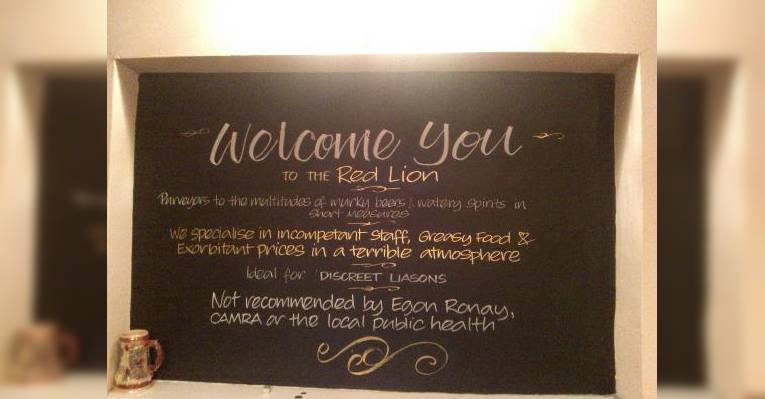 Welcome You
TO THE Red Lion
Purveyors to the multitudes of murky beers & watery spirits in
short measures
We specialise in incompetant staff, Greasy Food &
Exorbitant prices in a terrible atmosphere
Ideal for 'DISCREET LIASONS
Not recommended by Egon Ronay,
CAMRA or the local public health